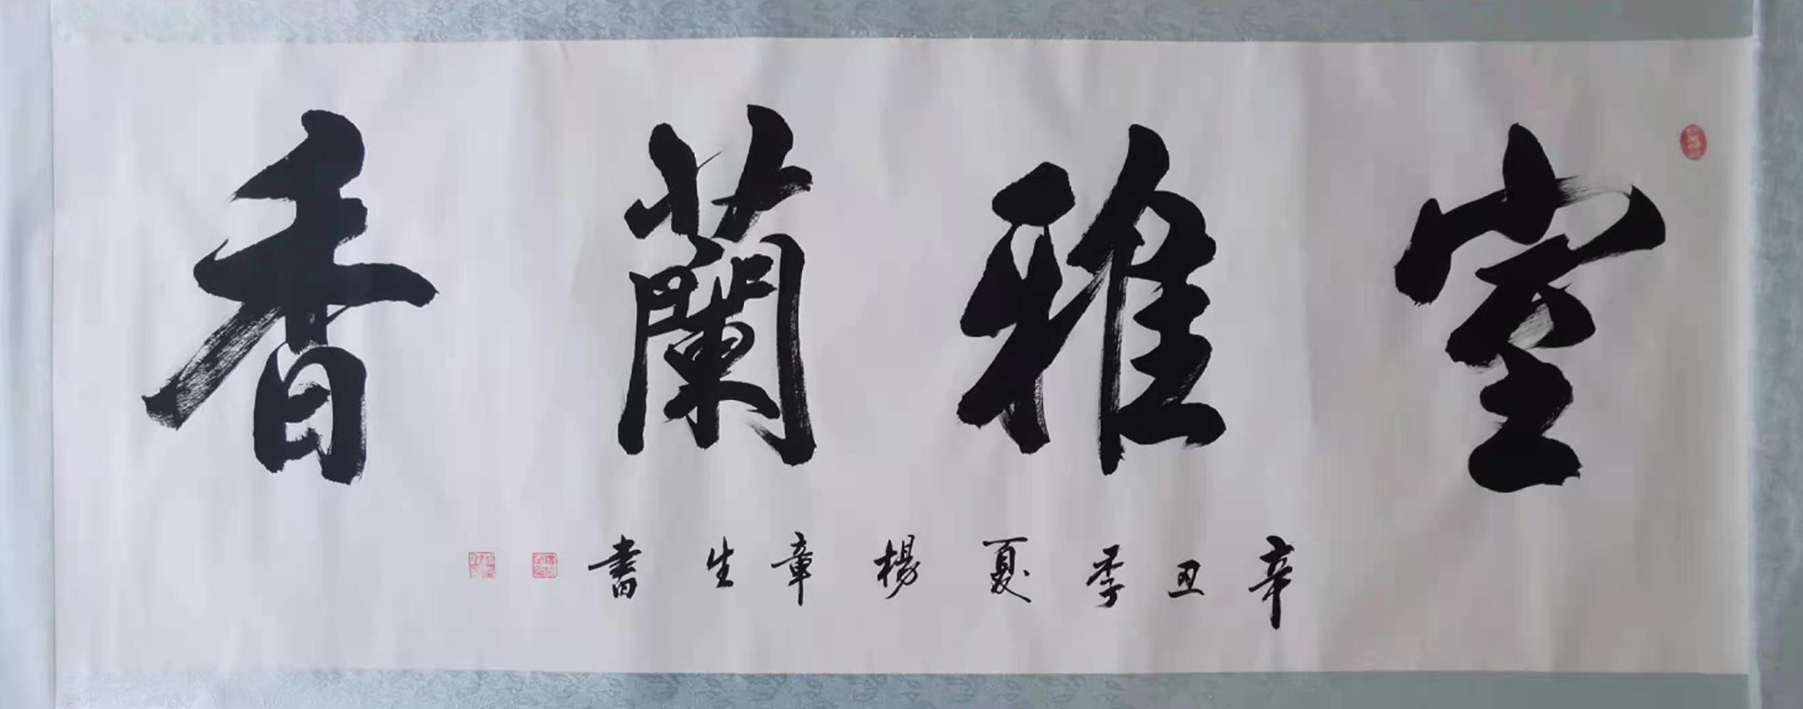 室雅蘭香
辛丑季夏楊章生書